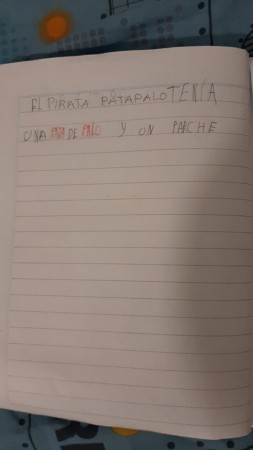 EL PIRATA PATAPALO TENÍA
UNA PATA DE PALO Y UN PARCHE